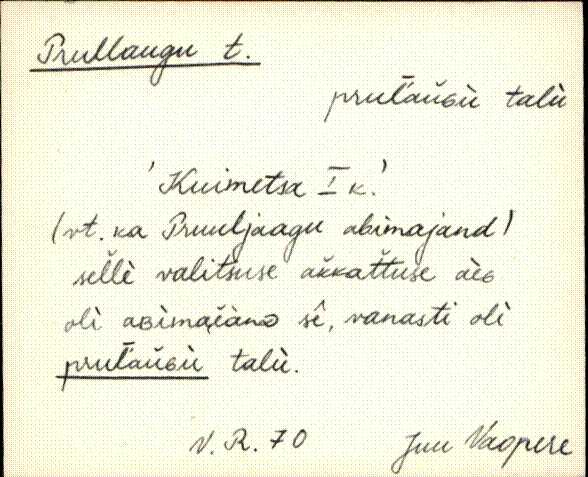 Prullaugu t.
prul̄'aŭɢù talù
'Kuimetsa I k.'
(vt. ka Pruuljaagu abimajand)
sell̆è valitsuse ak̆kat̆tuse àèɢ
olì aʙìmai̯ànᴅ sê, vanasti olì
prul̄'aŭɢù talù.
V. R. 70 Juu Vaopere